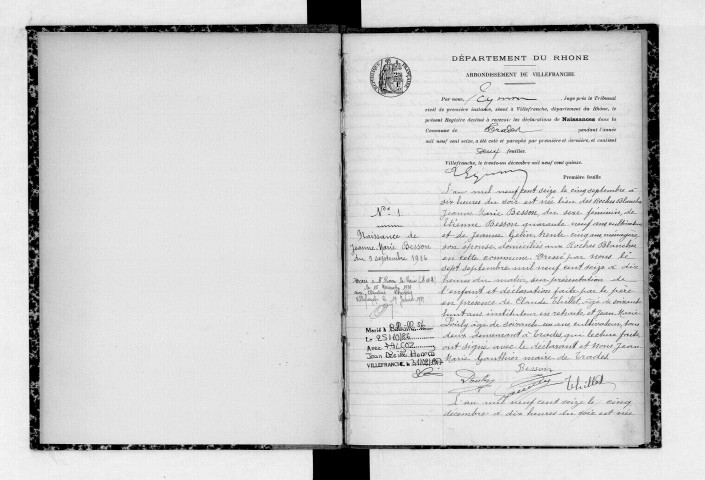 DÉPARTEMENT DU RHONE
ARRONDISSEMENT DE VILLEFRANCHE.
Par nous, Eymin, Juge près le Tribunal
civil de première instance, séant à Villefranche, département du Rhône, le
présent Registre destiné à recevoir les déclarations de Naissances dans la
Commune de Trades pendant l'année
mil neuf cent seize, a été coté et paraphé par première et dernière, et contient
deux feuilles.
Villefranche, le trente-un décembre mil neuf cent quinze.
Première feuille
N° 1
Naissance de
Jeanne Marie Besson
du 5 septembre 1916
Marié à
Le 25/10/86
Avec
Jean
VILLEFRANCHE, le
L'an mil neuf cent seize le cinq septembre à
six heures du soir est née lieu des Roches Blanches
Jeanne Marie Besson du sexe féminin, de
Etienne Besson quarante neuf ans cultivateur
et de Jeanne Gelin trente cinq ans ménagère
son épouse domiciliés aux Roches Blanches
en cette commune. Dressé par nous le
sept septembre mil neuf cent seize à dix
heures du matin, sur présentation de
l'enfant et déclaration faite par le père
en présence de Claude Thillet âgé de soixante
huit ans instituteur en retraite et Jean Marie
âgé de soixante six ans cultivateur, tous
deux demeurant à Trades qui lecture faite
ont signé avec le déclarant et Nous Jean
Marie Gauthier maire de Trades
Besson
Thillet
L'an mil neuf cent seize le cinq
décembre à dix heures du soir est née